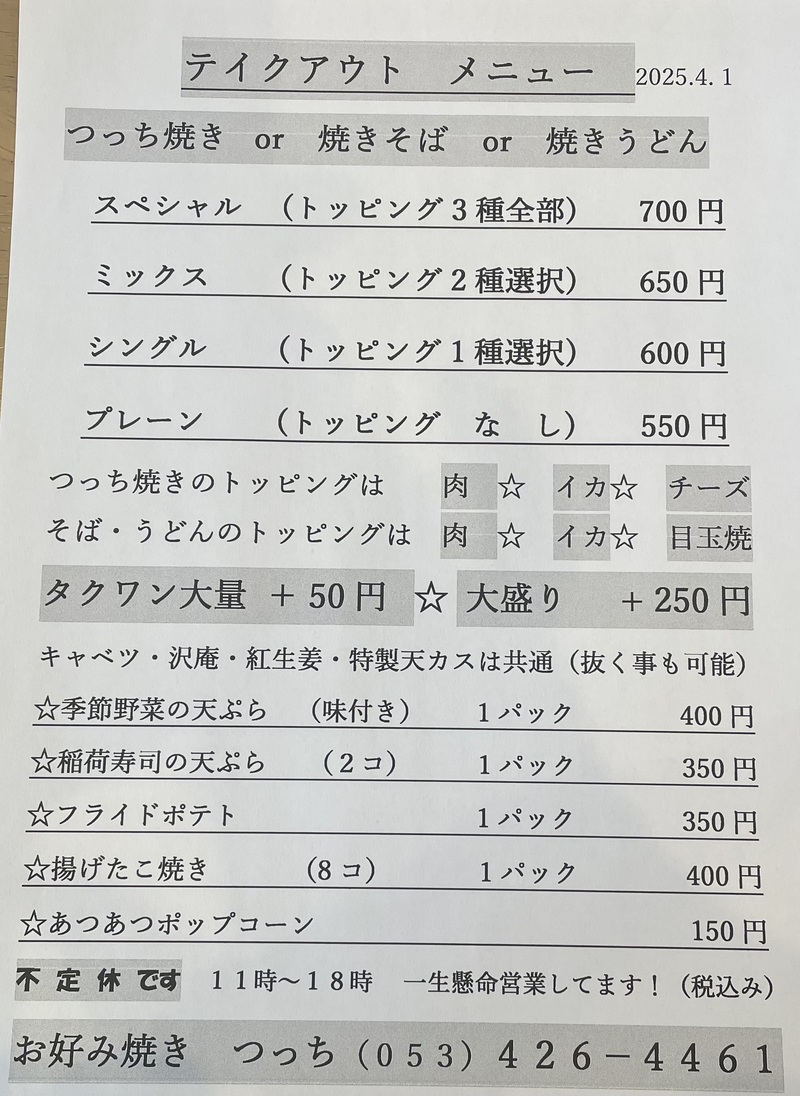 テイクアウト　メニュー　2025.4.1
つっち焼き　or　焼きそば　or　焼きうどん
スペシャル　（トッピング３種全部）　700円
ミックス　（トッピング２種選択）　650円
シングル　（トッピング１種選択）　600円
プレーン　（トッピング　な　し）　550円
つっち焼きのトッピングは　肉　☆　イカ☆　チーズ
そば・うどんのトッピングは　肉　☆　イカ☆　目玉焼
タクワン大量　＋50円　☆　大盛り　＋250円
キャベツ・沢庵・紅生姜・特製天カスは共通（抜く事も可能）
☆季節野菜の天ぷら　（味付き）　１パック　400円
☆稲荷寿司の天ぷら　（２コ）　１パック　350円
☆フライドポテト　１パック　350円
☆揚げたこ焼き　（8コ）　１パック　400円
☆あつあつポップコーン　150円
不定休です　１１時～１８時　一生懸命営業してます！（税込み）
お好み焼き　つっち（０５３）４２６－４４６１